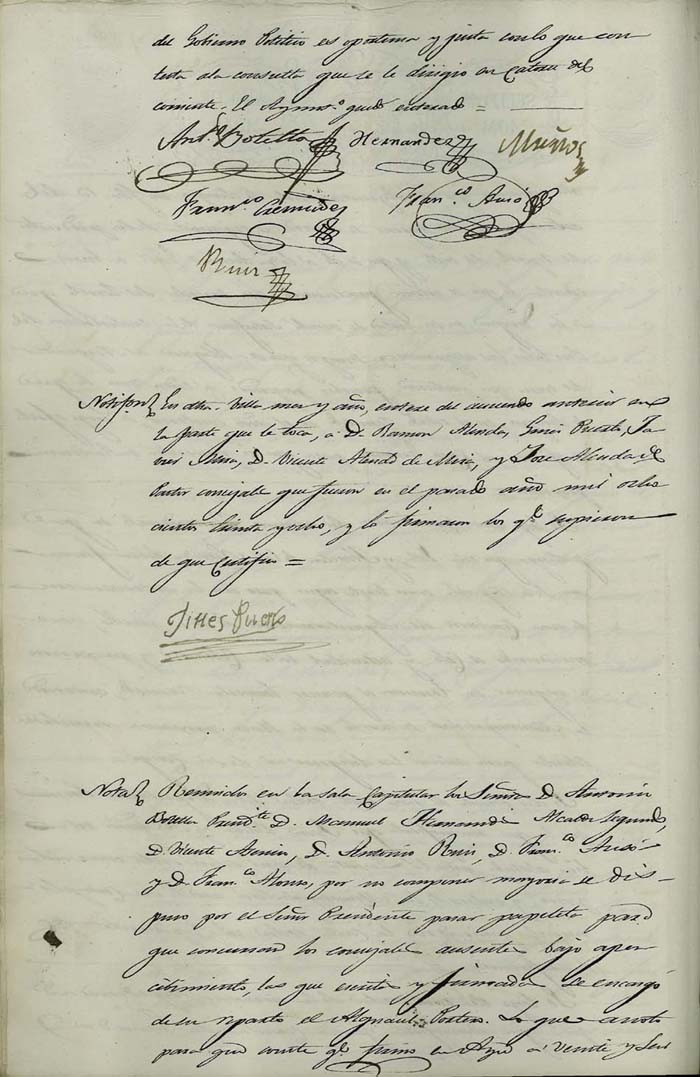 del Gobierno Politico es oportuna y justa con lo que con
testa ala consulta que se le dirigio en Catorce del
corriente. El Ayunt.º quedó enterado =
Ant.º Botella Hernandez Muños
Fran.co Fran.co Ausó
Ruiz
En dha. Villa mes y año, entere del acuerdo anterior en
la parte que le toca, a D. Ramon Alenda, Ginés Puerto, Ja
vier Mira, D. Vicente Alend de Mira, y Jose Alenda de
Pastor concejales que fueron en el pasado año mil ocho
cientos treinta y ocho, y lo firmaron los q.e supieron
de que Certifico =
Jines Puerto
Nota Reunidos en la sala Capitular los Señores D. Antonio
Botella Presid.te D. Manuel Hernandez Alcalde Segundo,
D. Vicente D. Antonio Ruiz, D. Fran.co Ausó
y D. Fran.co Alonso, por no componer mayoria se dis-
puso por el Señor Presidente pasar papeleta para
que concurran los concejales ausentes bajo aper
cibimiento, las que escritas y firmadas se encargó
de su reparto el Alguacil Portero. Lo que anoto
para que conste q.e firmo en a Veinte y Seis